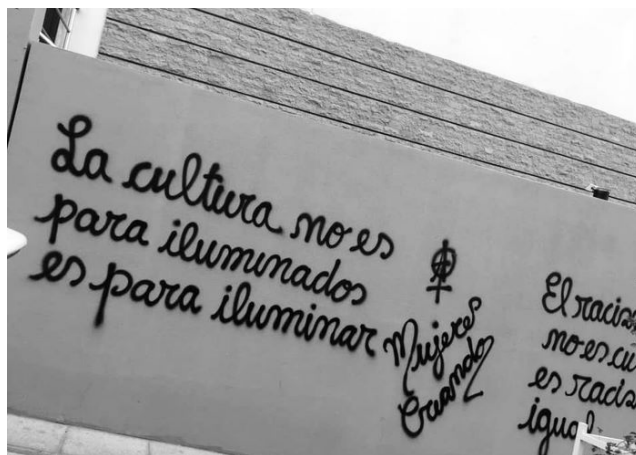 La cultura no es
para iluminados
es para iluminar
Mujeres
Creando
El racis
no es cu
es racis
igual